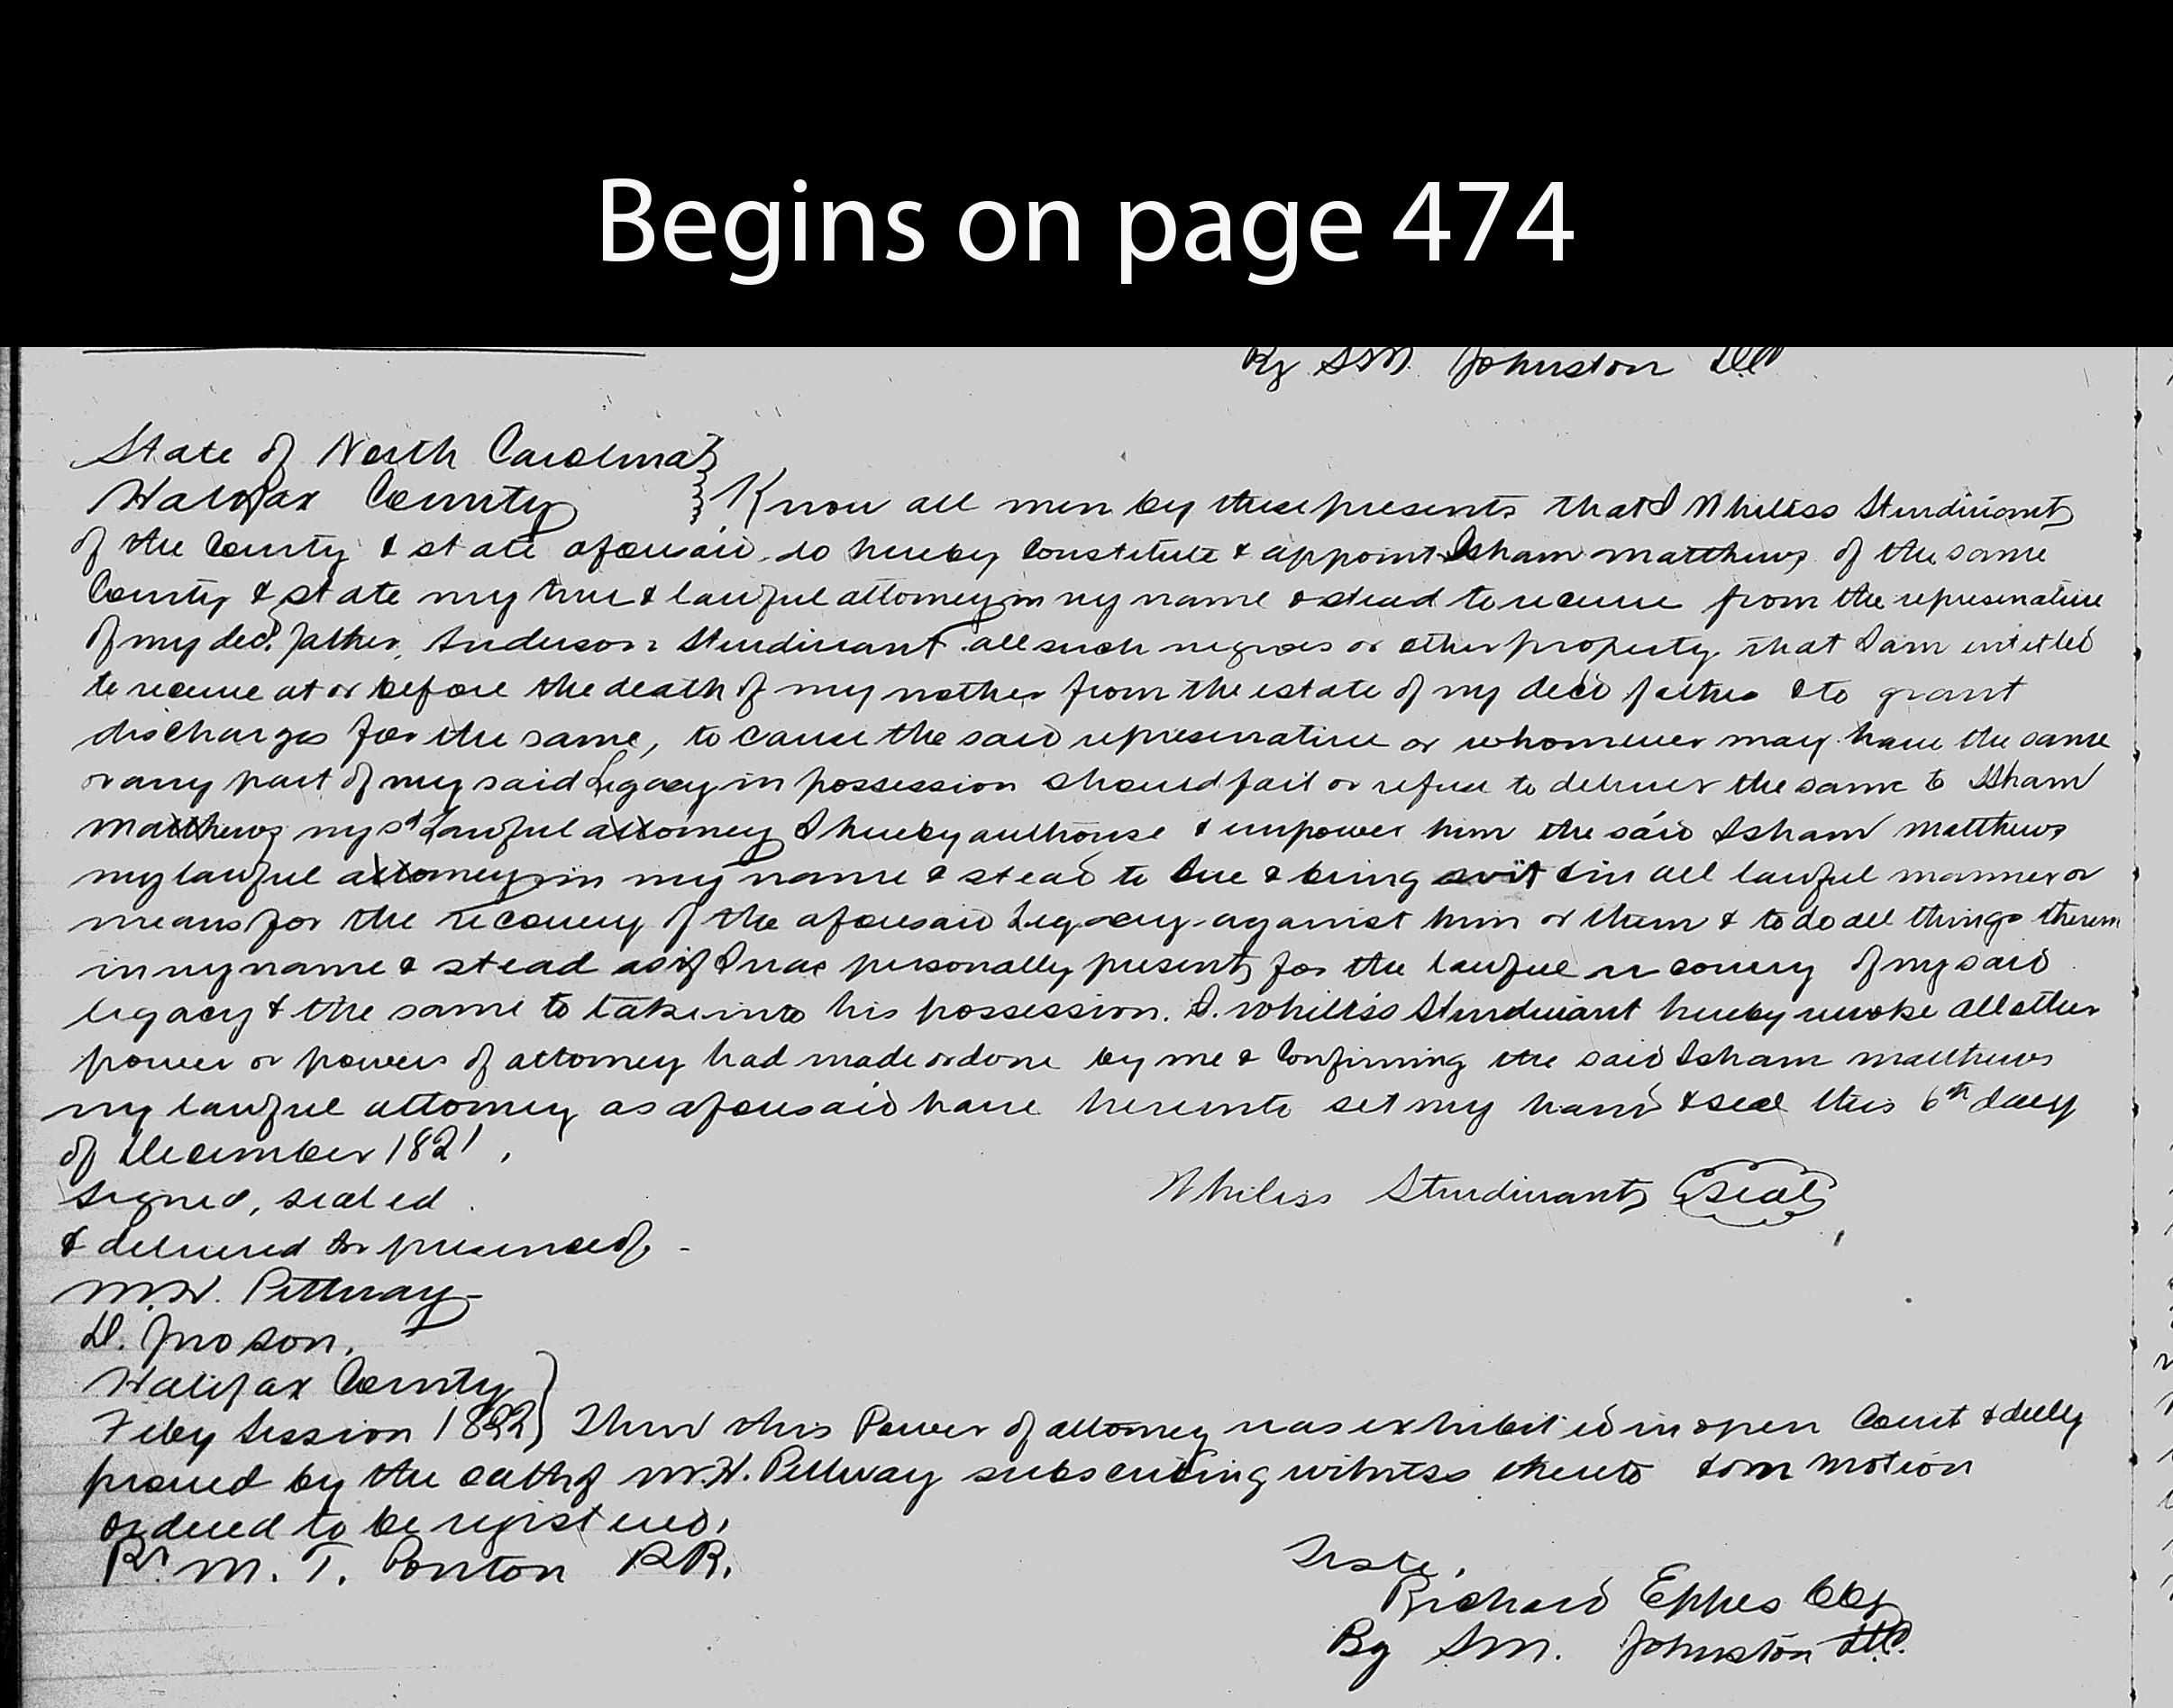 Begins on page 474
By SM. Johnston DC
State of North Carolina
Halifax County } Know all men by these presents that I Whiliss Sturdivant
of the County & state aforesaid do hereby Constitute & appoint Isham matthews of the same
County & state my true & lawful attorney in my name & stead to receive from the represenative
of my decd. father, Anderson Sturdivant all such negroes or other property that I am entitled
to receive at or before the death of my mother from the estate of my decd father & to grant
discharges for the same, to cause the said represenative or whomever may have the same
or any part of my said Legacy in possession should fail or refuse to deliver the same to Isham
Matthews my sd Lawful attorney I hereby authorise & empower him the said Isham Matthews
my lawful attorney in my name & stead to Sue & bring suit & in all lawful manner or
means for the recovery of the aforesaid Legacy against him or them & to do all things therein
in my name & stead as if I was personally present for the lawful recovery of my said
legacy & the same to take into his possession. I. Whiliss Sturdivant hereby revoke all other
power or powers of attorney had made or done by me & Confirming the said Isham matthews
my lawful attorney as aforesaid have hereunto set my hand & seal this 6th day
of December 1821.
Whiliss Sturdivant (Seal)
Signed, sealed
& delivered In presence of
M.H. Pettway
D. Jno son.
Halifax County }
Feby Session 1822 } Then this Power of attorney was exhibited in open Court & dully
proved by the oath of M.H. Pettway subscribing witness thereto & on motion
ordered to be registered.
Pr. M. T. Ponton PR.
Teste,
Richard Eppes CCy
By SM. Johnston DC.